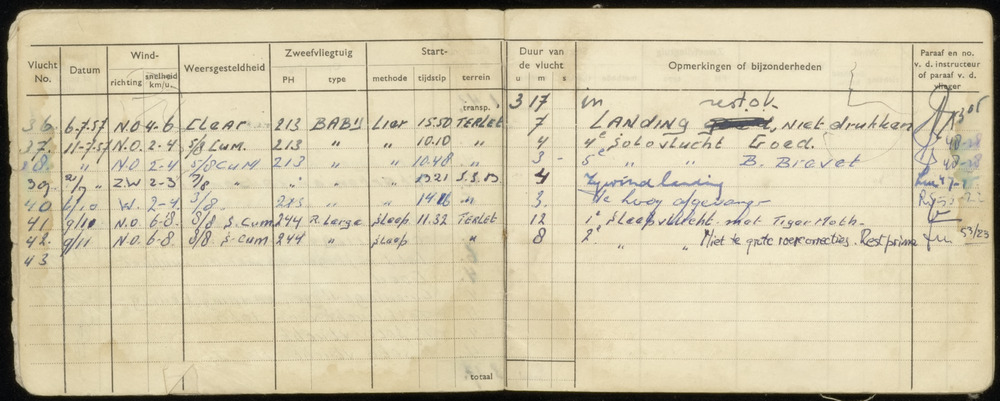 Vlucht No. Datum Wind- richting snelheid km/u. Weersgesteldheid Zweefvliegtuig PH type Start- methode tijdstip terrein Duur van de vlucht u m s Opmerkingen of bijzonderheden Paraaf en no. v. d. instructeur of paraaf v. d. vlieger
transp. 3 17 in rest o.k.
36. 6-7-57 N.O. 4-6 Clear 213 BABY Lier 15.50 TERLET 7 LANDING , niet drukken
37. 11-7-57 N.O. 2-4 5/8 Cum. 213 " " 10.10 " 4 4e solovlucht Goed.
38. " N.O. 2-4 5/8 CUM 213 " " 10.48 " 3 - 5e " " B. Brevet
39 " Z.W 2-3 7/8 " " " " 13.21 4 Zijwind landing
40 6/10 W. 2-4 3/8 213 " " " 3. Te hoog afgevangen
41 9/10 N.O. 6-8. 8/8 S.Cum 244 R. Lerge sleep 11.32 TERLET 12 1e sleepvlucht met Tiger Moth.
42. 9/11 N.O. 6-8 8/8 S-Cum 244 " sleep " 8 2e " " Niet te grote roercorrecties. Rest prima 53/23
43
totaal